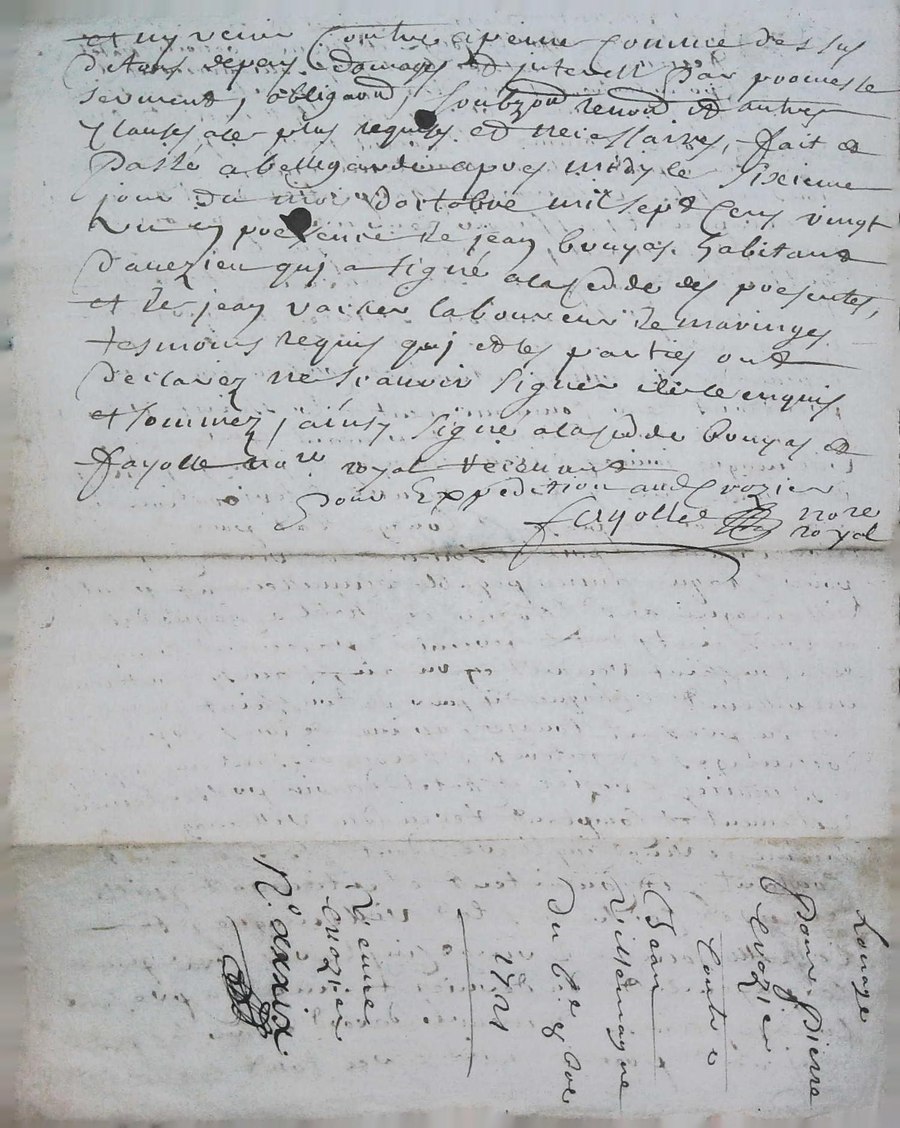 et ny venir Contre a peine Comme dessus
detous depens domages et interest par promesse
serment, obligaōn, soubzōn renonō et autres
Clauses ale plus requises et necessaires, fait et
Passé abellegarde apres midy le Sixieme
jour du moi doctobre mil sept Cens vingt
un en presence de jean bouyas habitant
davezieu quj a signé alacede des presentes,
et de jean vacher laboureur de maringes
tesmoins requis quj et les parties ont
declarez ne scauoir signer dece enquis
et sommez, ainsy signé alacede bouyas et
fayolle nore royal
pour Expedition aud Crozier
fayolle nore
royal
Louage
pour Pierre
Crozier
Contre
Jean
Villemagne
Du 6e 8bre
1721
pierre
Crozier
N.o